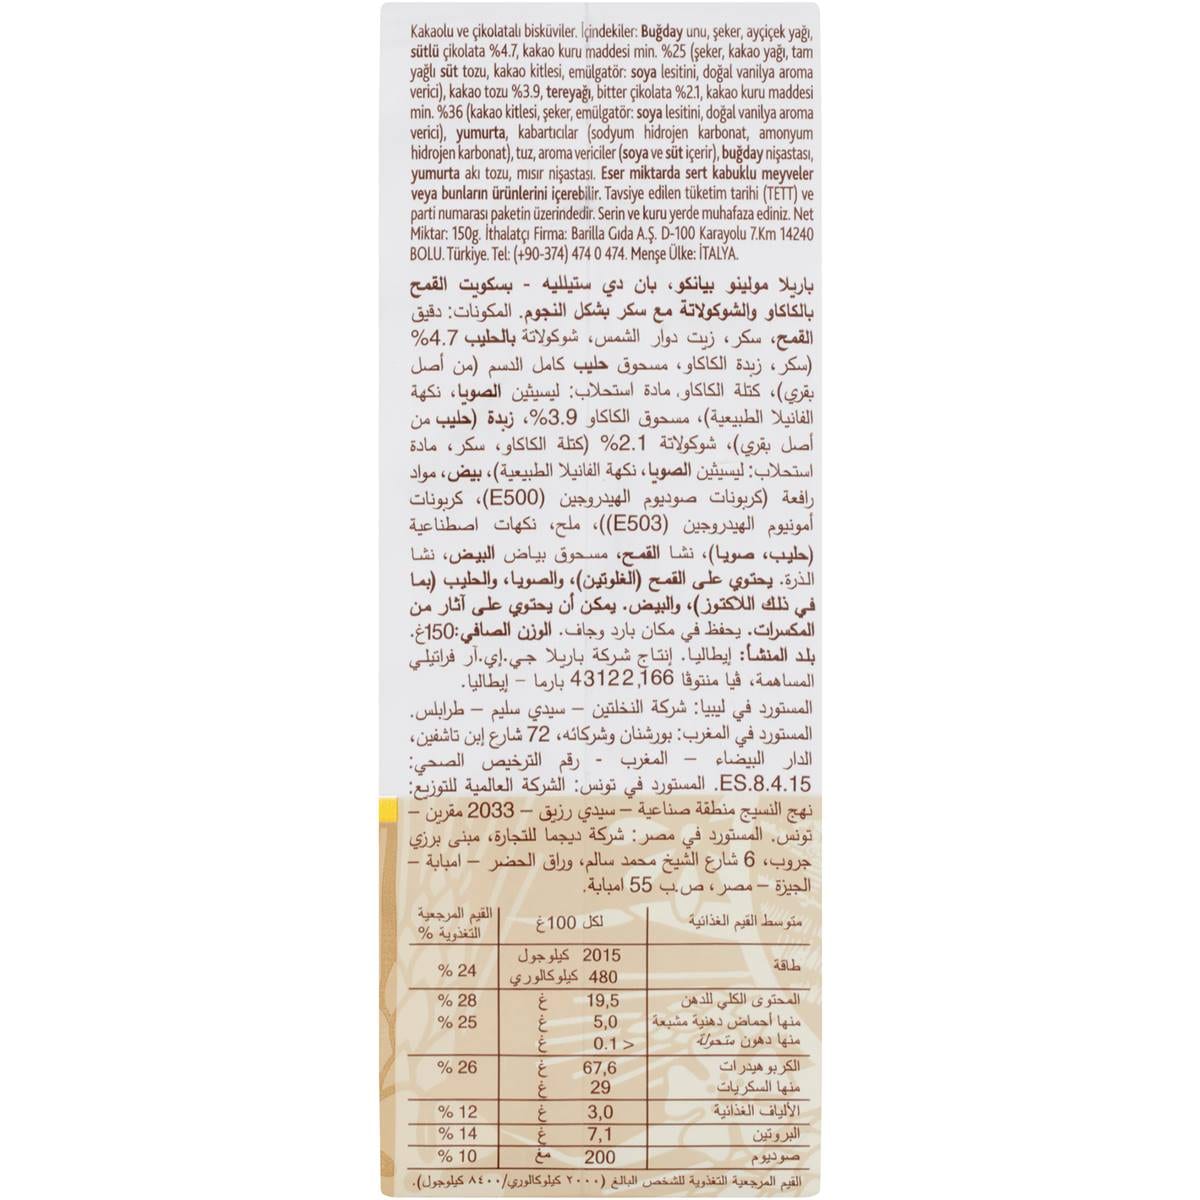 Kakaolu ve çikolatalı bisküviler. İçindekiler: Buğday unu, şeker, ayçiçek yağı,
sütlü çikolata %4.7, kakao kuru maddesi min. %25 (şeker, kakao yağı, tam
yağlı süt tozu, kakao kitlesi, emülgatör: soya lesitini, doğal vanilya aroma
verici), kakao tozu %3.9, tereyağı, bitter çikolata %2.1, kakao kuru maddesi
min. %36 (kakao kitlesi, şeker, emülgatör: soya lesitini, doğal vanilya aroma
verici), yumurta, kabartıcılar (sodyum hidrojen karbonat, amonyum
hidrojen karbonat), tuz, aroma vericiler (soya ve süt içerir), buğday nişastası,
yumurta akı tozu, mısır nişastası. Eser miktarda sert kabuklu meyveler
veya bunların ürünlerini içerebilir. Tavsiye edilen tüketim tarihi (TETT) ve
parti numarası paketin üzerindedir. Serin ve kuru yerde muhafaza ediniz. Net
Miktar: 150g. İthalatçı Firma: Barilla Gıda A.Ş. D-100 Karayolu 7.Km 14240
BOLU. Türkiye. Tel: (+90-374) 474 0 474. Menşe Ülke: İTALYA.
باريلا مولينو بيانكو، بان دي ستيلليه - بسكويت القمح
بالكاكاو والشوكولاتة مع سكر بشكل النجوم. المكونات: دقيق
القمح، سكر، زيت دوار الشمس، شوكولاتة بالحليب 4.7%
(سكر، زبدة الكاكاو، مسحوق حليب كامل الدسم (من أصل
بقري)، كتلة الكاكاو. مادة استحلاب: ليسيثين الصويا، نكهة
الفانيلا الطبيعية)، مسحوق الكاكاو 3.9%، زبدة (حليب من
أصل بقري)، شوكولاتة 2.1% (كتلة الكاكاو، سكر، مادة
استحلاب: ليسيثين الصويا، نكهة الفانيلا الطبيعية)، بيض، مواد
رافعة (كربونات صوديوم الهيدروجين (E500)، كربونات
أمونيوم الهيدروجين (E503))، ملح، نكهات اصطناعية
(حليب، صويا)، نشا القمح، مسحوق بياض البيض، نشا
الذرة. يحتوي على القمح (الغلوتين)، والصويا، والحليب (بما
في ذلك اللاكتوز)، والبيض. يمكن أن يحتوي على آثار من
المكسرات. يحفظ في مكان بارد وجاف. الوزن الصافي:150غ.
بلد المنشأ: إيطاليا. إنتاج شركة باريلا جي.إي.آر فراتيلي
المساهمة، ڤيا منتوڤا 43122,166 بارما – إيطاليا.
المستورد في ليبيا: شركة النخلتين – سيدي سليم – طرابلس.
المستورد في المغرب: بورشنان وشركائه، 72 شارع إبن تاشفين،
الدار البيضاء – المغرب - رقم الترخيص الصحي:
ES.8.4.15. المستورد في تونس: الشركة العالمية للتوزيع:
نهج النسيج منطقة صناعية – سيدي رزيق – 2033 مقرين –
تونس. المستورد في مصر: شركة ديجما للتجارة، مبنى برزي
جروب، 6 شارع الشيخ محمد سالم، وراق الحضر – امبابة –
الجيزة – مصر، ص.ب 55 امبابة.
متوسط القيم الغذائية لكل 100غ القيم المرجعية
التغذوية %
طاقة 2015 كيلوجول
480 كيلوكالوري 24 %
المحتوى الكلي للدهن 19,5 غ 28 %
منها أحماض دهنية مشبعة 5,0 غ 25 %
منها دهون متحولة < 0.1 غ
الكربوهيدرات 67,6 غ 26 %
منها السكريات 29 غ
الألياف الغذائية 3,0 غ 12 %
البروتين 7,1 غ 14 %
صوديوم 200 مغ 10 %
القيم المرجعية التغذوية للشخص البالغ (٢٠٠٠ كيلوكالوري/٨٤٠٠ كيلوجول).